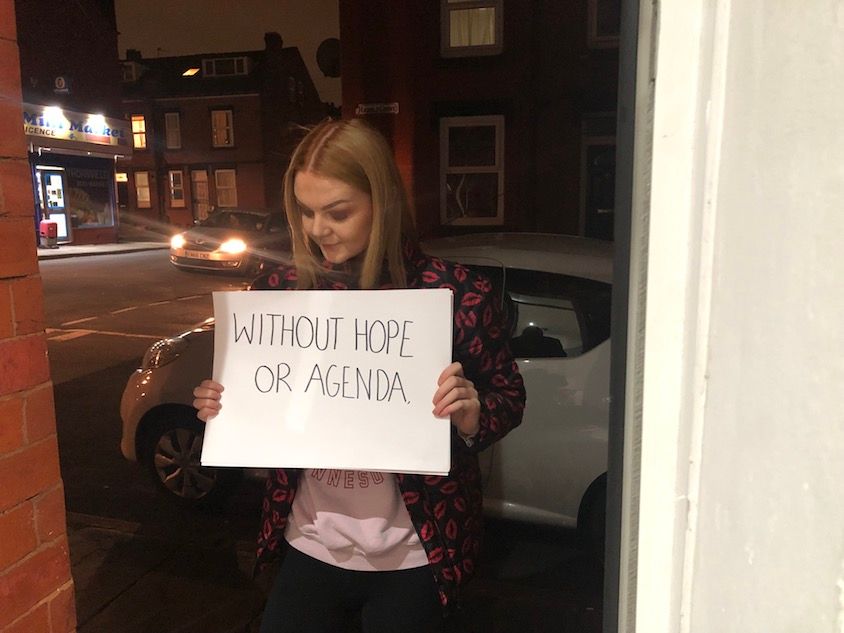 Mini Market
LICENCE
WITHOUT HOPE
OR AGENDA,
NNESO